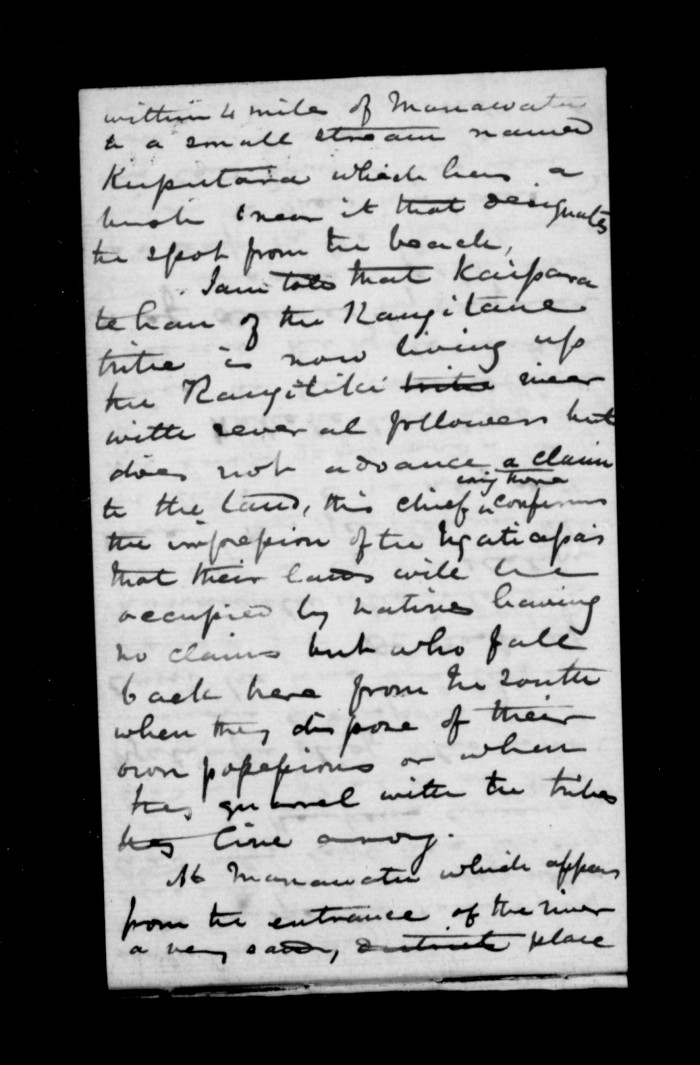 within 4 miles of Manawatu
to a small stream named
Kuputara which has a
bush near it that designates
the spot from the beach,
I am told that Kaipara
te hau of the Rangitane
tribe is now living up
the Rangitiki tribe river
with several followers but
does not advance a claim
to the land, this chief confirms
the impression of the Ngatiapas
that their lands will be
occupied by natives having
no claims but who fall
back here from the south
when they dispose of their
own possessions or when
they quarrel with the tribes
they live among.
At Manawatu which appears
from the entrance of the river
a very sandy, district place